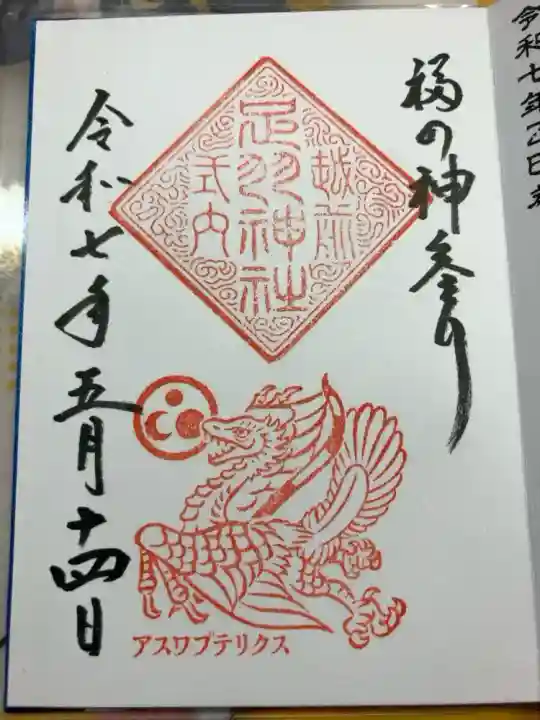 福の神参り
越前
足羽神社
式内
令和七年五月十四日
アスワプテリクス
令和七年